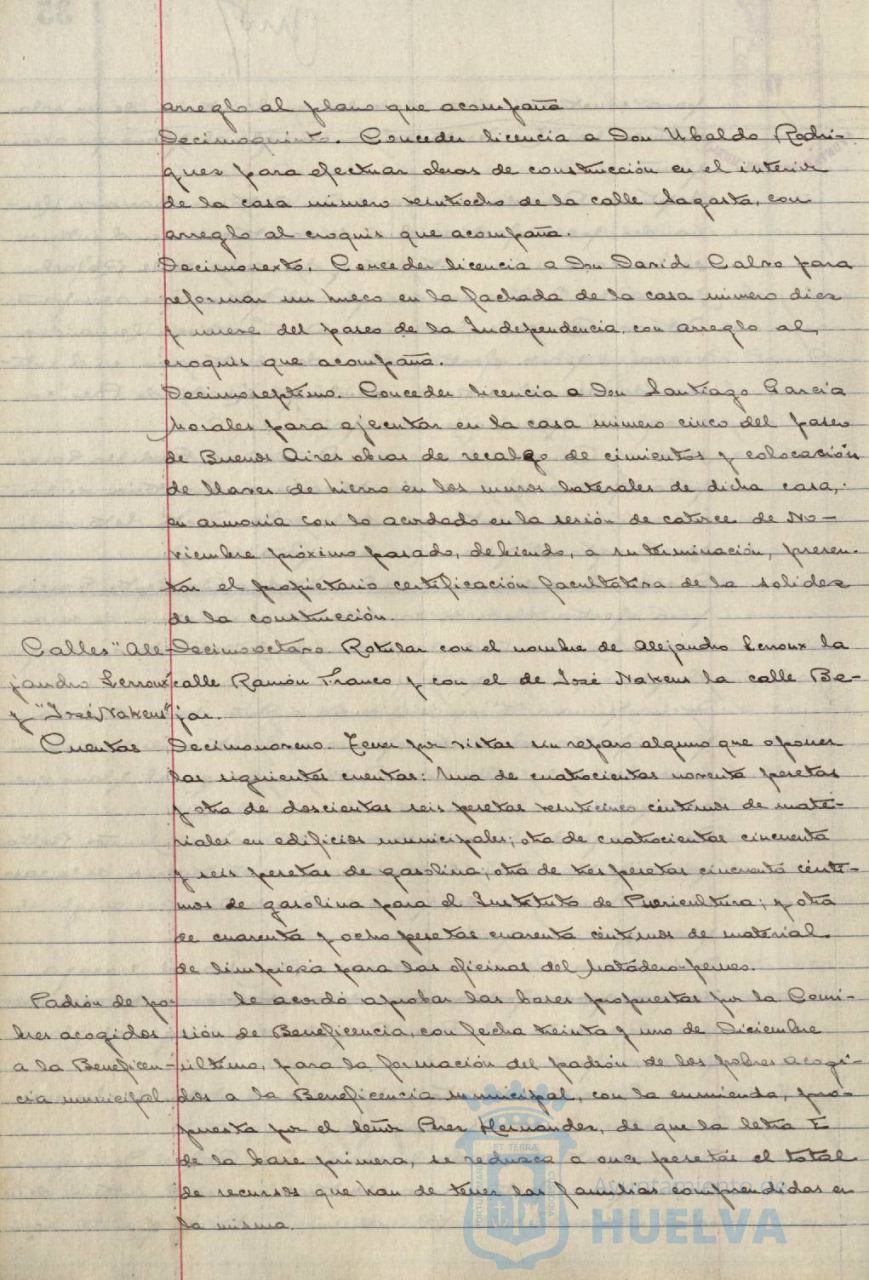 arreglo al plano que acompaña
Decimoquinto. Conceder licencia a Don Ubaldo Rodri-
guez para efectuar obras de construcción en el interior
de la casa número veintiocho de la calle Sagasta, con
arreglo al croquis que acompaña.
Decimosexto. Conceder licencia a Don David Calvo para
reformar un hueco en la fachada de la casa número diez
y nueve del paseo de la Independencia, con arreglo al
croquis que acompaña.
Decimoseptimo. Conceder licencia a Don Santiago García
Morales para ejecutar en la casa número cinco del paseo
de Buenos Aires obras de recalzo de cimientos y colocación
de llaves de hierro en los muros laterales de dicha casa,
en armonia con lo acordado en la sesión de catorce de No-
viembre próximo pasado, debiendo, a su terminación, presen-
tar el propietario certificación facultativa de la solidez
de la construcción.
Calles "Ale-
jandro Lerroux"
y "José Nakens"
Decimoctavo Rotular con el nombre de Alejandro Lerroux la
calle Ramón Franco y con el de José Nakens la calle Be-
jar.
Cuentas
Decimonoveno. Tener por vistas sin reparo alguno que oponer
las siguientes cuentas: Una de cuatrocientas noventa pesetas
y otra de doscientas seis pesetas veinticinco céntimos de mate-
riales en edificios municipales; otra de cuatrocientas cincuenta
y seis pesetas de gasolina; otra de tres pesetas cincuenta cénti-
mos de gasolina para el Instituto de Puericultura; y otra
de cuarenta y ocho pesetas cuarenta céntimos de material
de limpieza para las oficinas del Matadero-perreo.
Padrón de po-
bres acogidos
a la Beneficen-
cia municipal
Se acordó aprobar las bases propuestas por la Comi-
sión de Beneficencia, con fecha treinta y uno de Diciembre
último, para la formación del padrón de los pobres acogi-
dos a la Beneficencia municipal, con la enmienda, pro-
puesta por el Señor Pérez Hernandez, de que la letra E
de la base primera, se reduzca a once pesetas el total
de recursos que han de tener las familias comprendidas en
la misma.
Ayuntamiento de
HUELVA